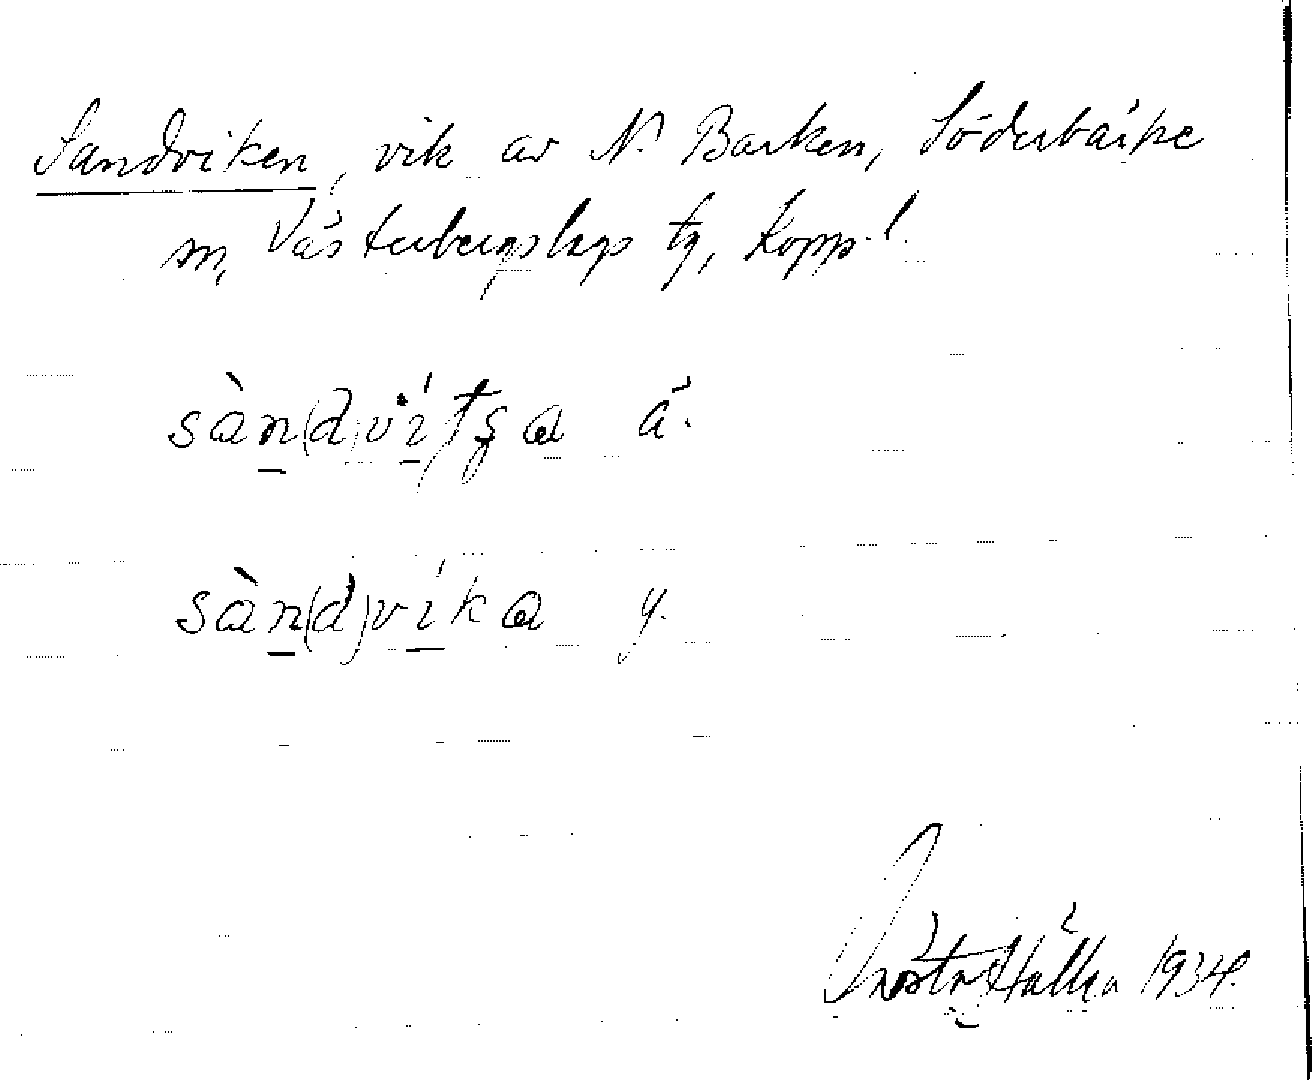 Sandviken, vik av N. Barken, Söderbärke
sn, Västerbergslags tg, Kopp. l.
sàn(d)vítʂa ä.
sàn(d)víka y.
1934.